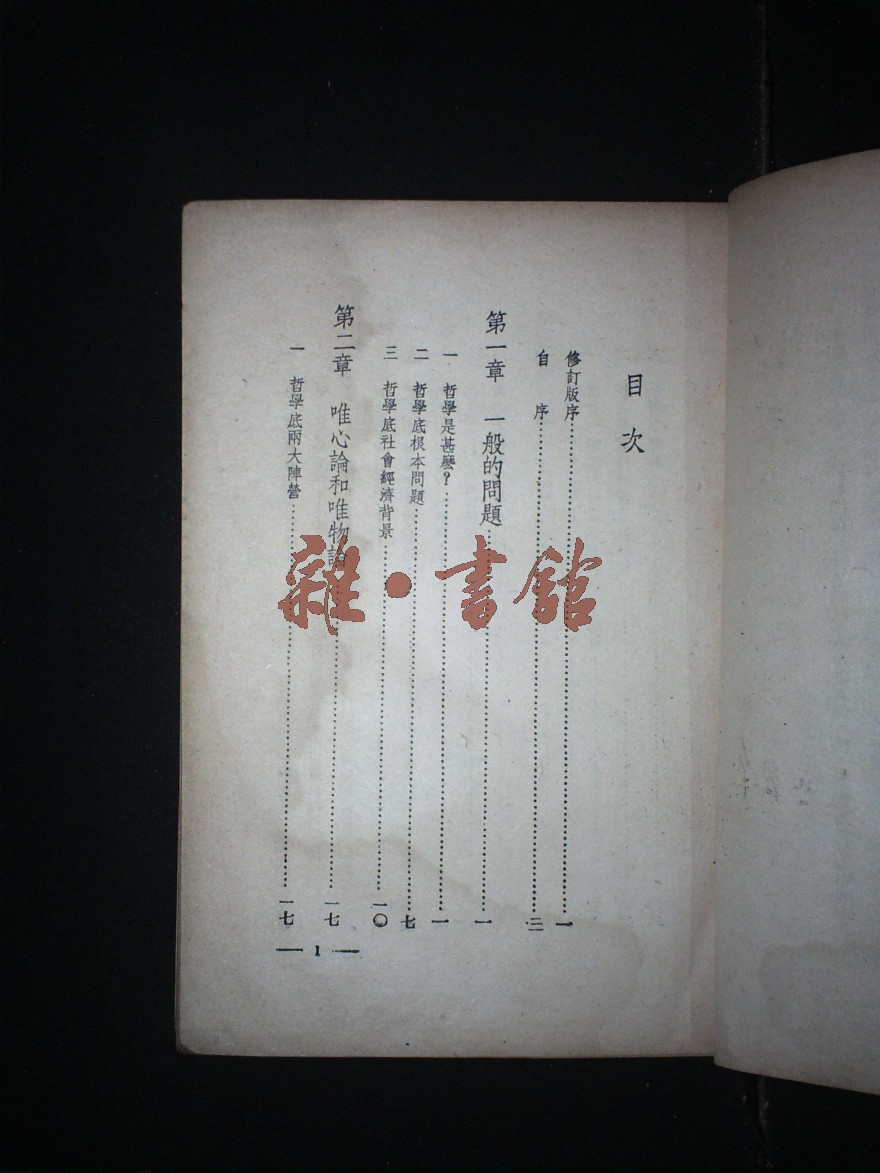 目次
修訂版序……一
自序……三
第一章 一般的問題……一
一 哲學是甚麽？……一
二 哲學底根本問題……七
三 哲學底社會經濟背景……一〇
第二章 唯心論和唯物論……一七
一 哲學底兩大陣營……一七
— 1 —
雜·書館